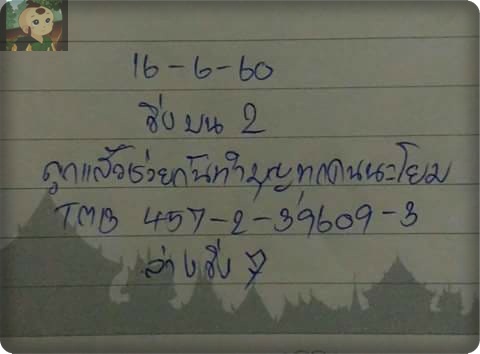 16-6-60
วิ่งบน 2
ถูกแล้วช่วยกันทำบุญทุกคนนะโยม
TMB 457-2-39609-3
ล่างวิ่ง 7